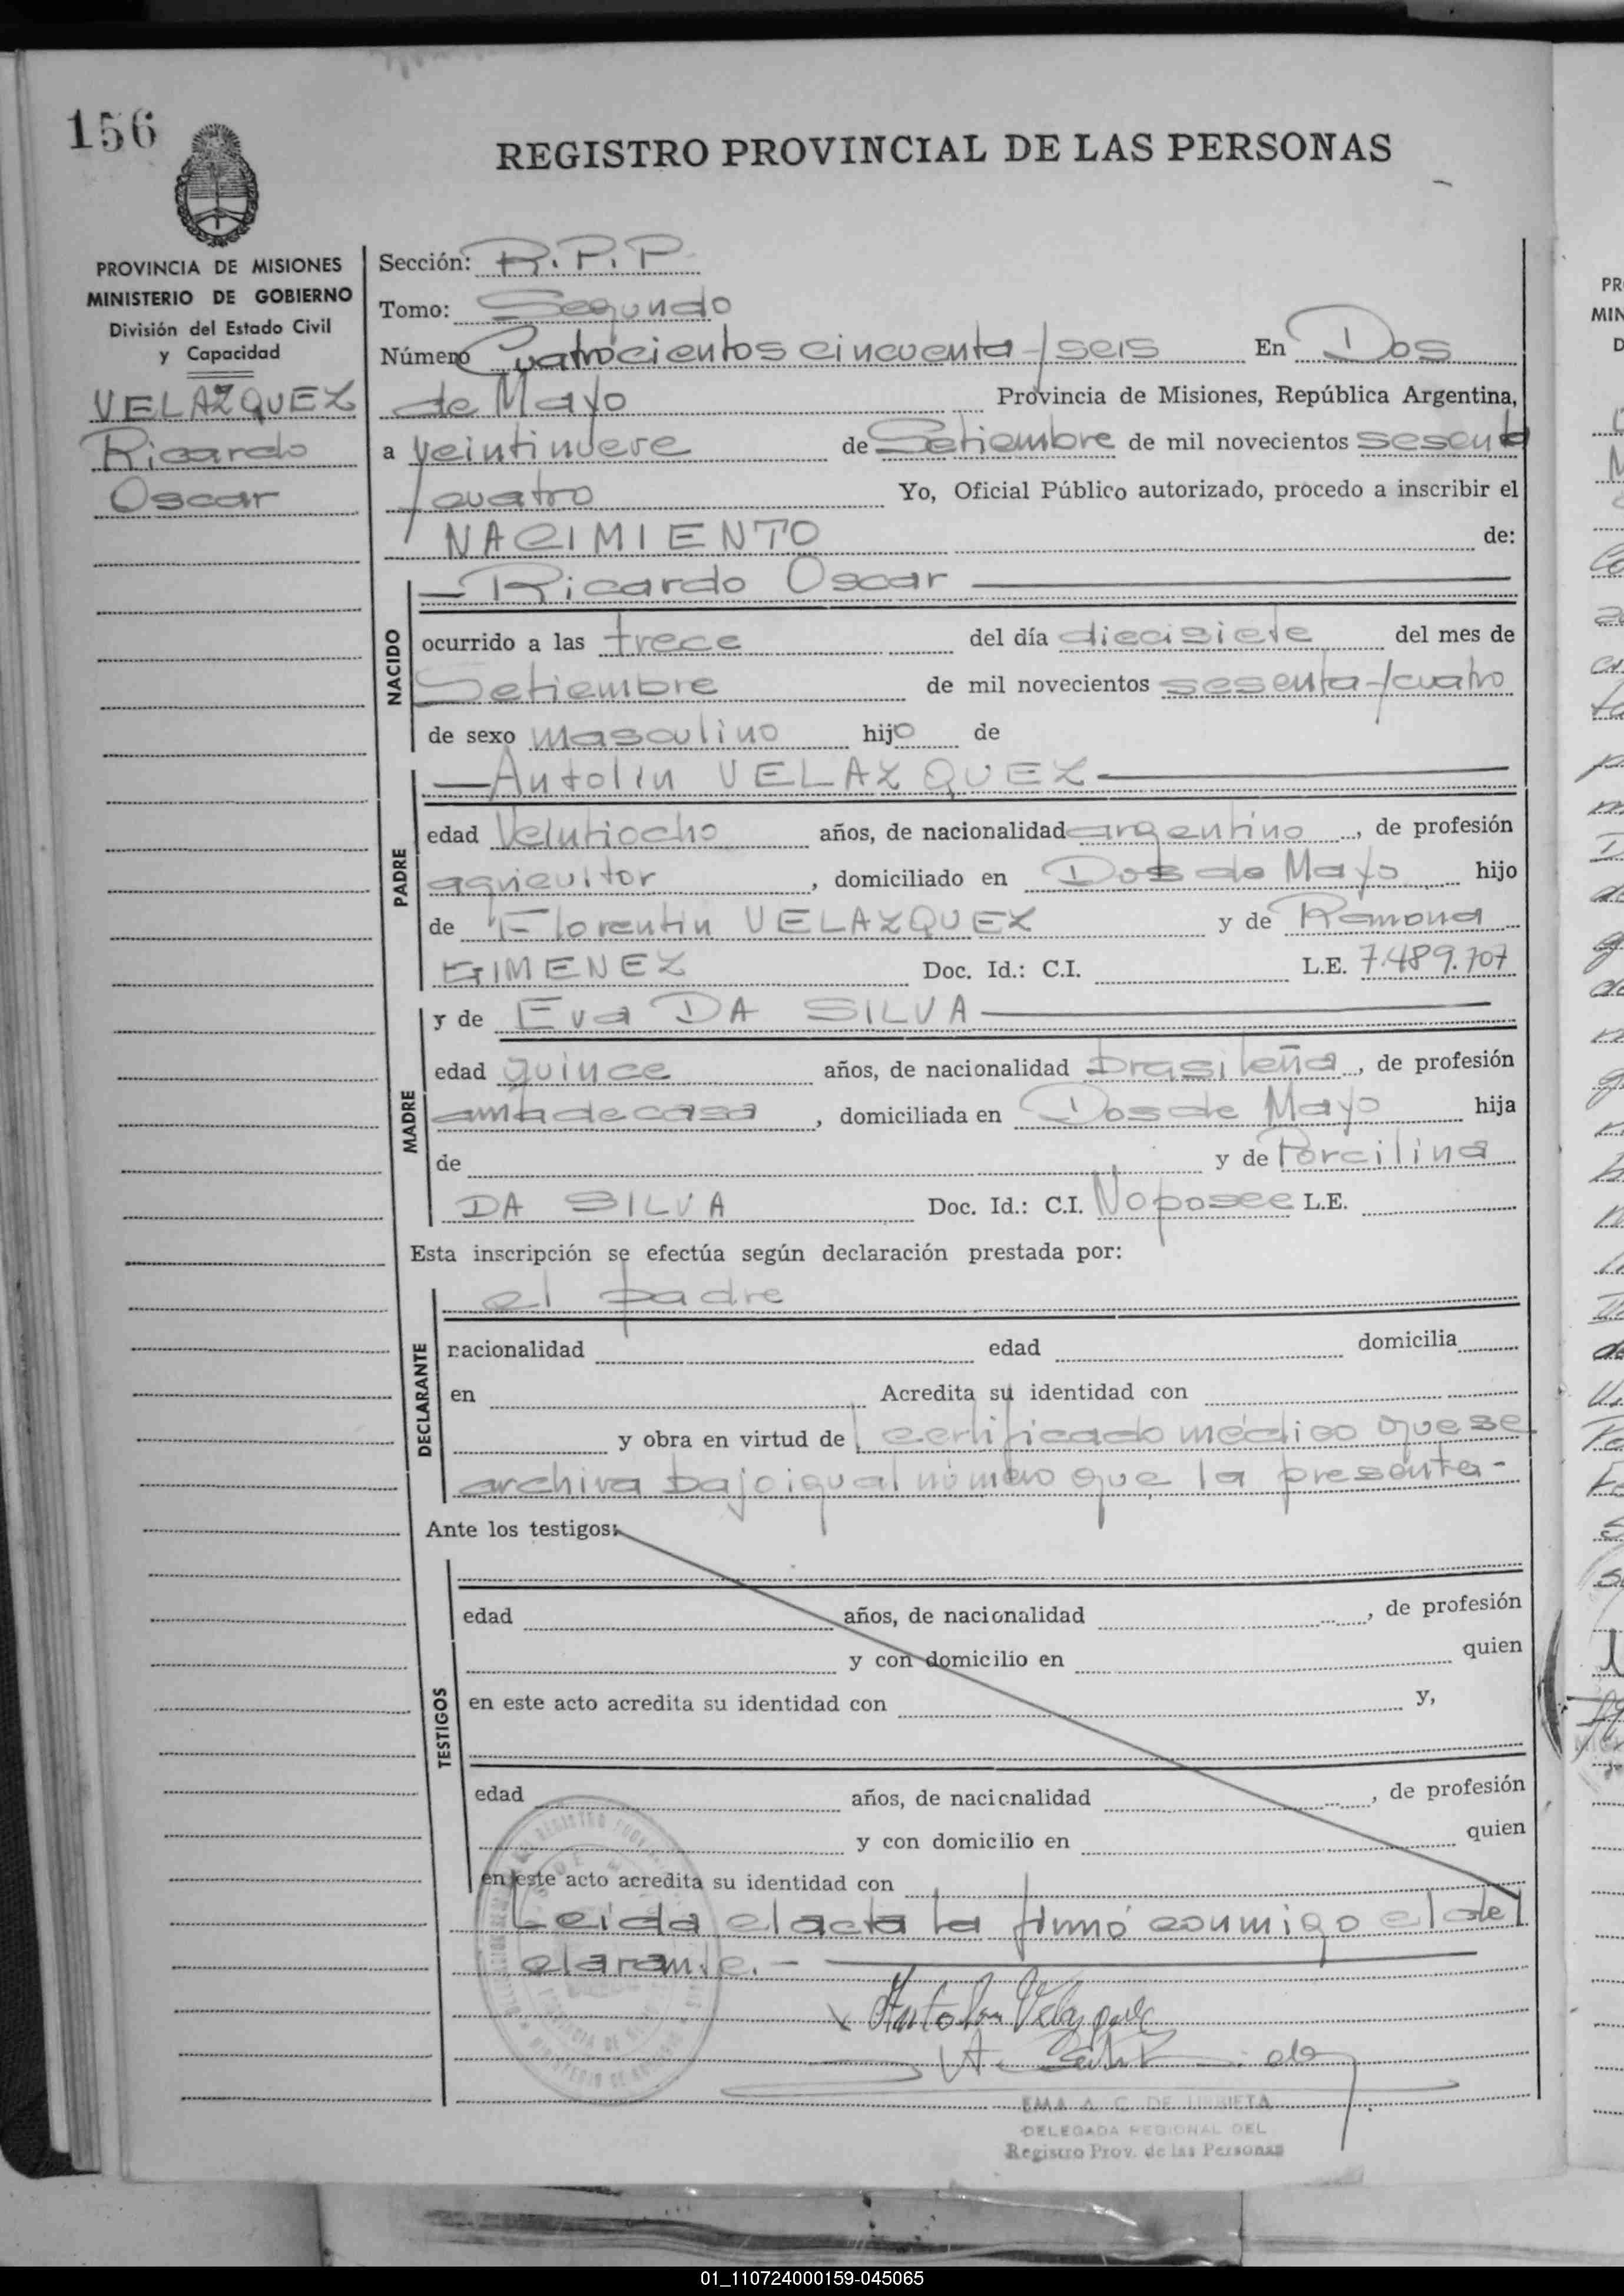 156
REGISTRO PROVINCIAL DE LAS PERSONAS
PROVINCIA DE MISIONES
MINISTERIO DE GOBIERNO
División del Estado Civil
y Capacidad
VELAZQUEZ
Ricardo
Oscar
Sección: R.P.P.
Tomo: Segundo
Número Cuatrocientos cincuenta y seis En Dos
de Mayo Provincia de Misiones, República Argentina,
a veintinueve de Setiembre de mil novecientos sesenta
y cuatro Yo, Oficial Público autorizado, procedo a inscribir el
NACIMIENTO de:
NACIDO
Ricardo Oscar
ocurrido a las trece del día diecisiete del mes de
Setiembre de mil novecientos sesenta y cuatro
de sexo masculino hijo de
PADRE
Antolin VELAZQUEZ
edad Veintiocho años, de nacionalidad argentino, de profesión
agricultor, domiciliado en Dos de Mayo hijo
de Florentin VELAZQUEZ y de Ramona
GIMENEZ Doc. Id.: C.I. L.E. 7.489.707
MADRE
y de Eva DA SILVA
edad quince años, de nacionalidad brasileña, de profesión
ama de casa, domiciliada en Dos de Mayo hija
de y de Porcilina
DA SILVA Doc. Id.: C.I. No posee L.E.
Esta inscripción se efectúa según declaración prestada por:
DECLARANTE
el padre
nacionalidad edad domicilia
en Acredita su identidad con
y obra en virtud de certificado médico que se
archiva bajo igual número que la presente-
Ante los testigos:
TESTIGOS
edad años, de nacionalidad, de profesión
y con domicilio en quien
en este acto acredita su identidad con y,
edad años, de nacionalidad, de profesión
y con domicilio en quien
en este acto acredita su identidad con
Leida el acta la firmó conmigo el de
clarante.-
Antolin Velazquez
EMA A. C. DE URRIETA
DELEGADA REGIONAL DEL
Registro Prov. de las Personas
01_110724000159-045065